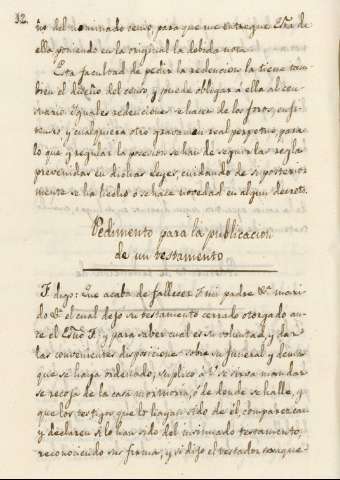 32.
ños del nominado censo, para que me entregue Esra de
ella poniendo en la original la debida nota
Esta facultad de pedir la redencion la tiene tam-
bien el dueño del censo, y puede obligar a ella al cen-
suario. Yguales redenciones se hacen de los foros, enfi-
teusis y cualquiera otro gravamen real perpetuo, para
lo que y regular la posesion se han de seguir las reglas
prevenidas en dichas leyes, cuidando de si posterior-
mente se ha hecho ó se hace novedad en algun decreto.
Pedimento para la publicacion
de un testamento
F. digo: Que acaba de fallecer F. mi padre &a mari-
do &a el cual dejo su testamento cerrado otorgado an-
te el Esno F. y para saber cual es su voluntad, y dar
las convenientes disposiciones sobre su funeral y demas
que se haya ordenado, suplico a V. se sirva mandar
se recoja de la casa mortuoria, ó de donde se halle, y
que los testigos que lo hayan sido de el, comparezcan
y declaren si lo han sido del insinuado testamento,
reconociendo sus firmas, y si dijo el testador que que-